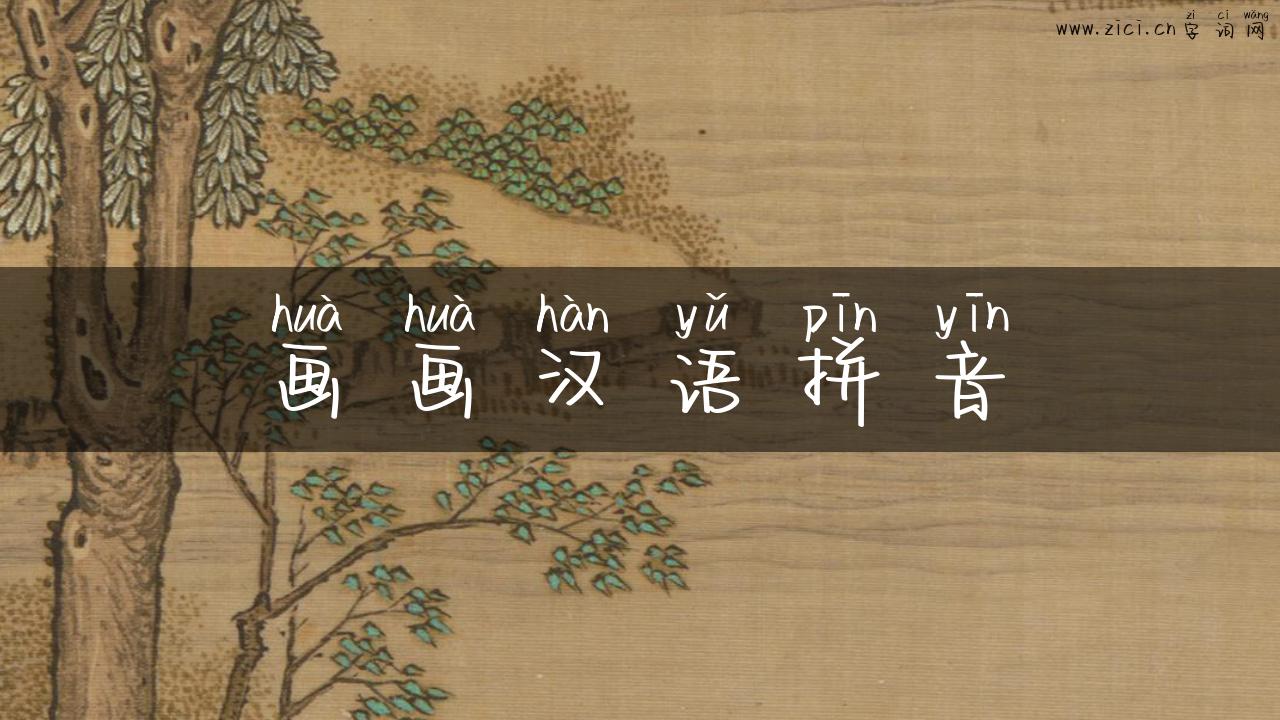 zì cí wǎng
www.zici.cn 字 词 网
huà huà hàn yǔ pīn yīn
画 画 汉 语 拼 音